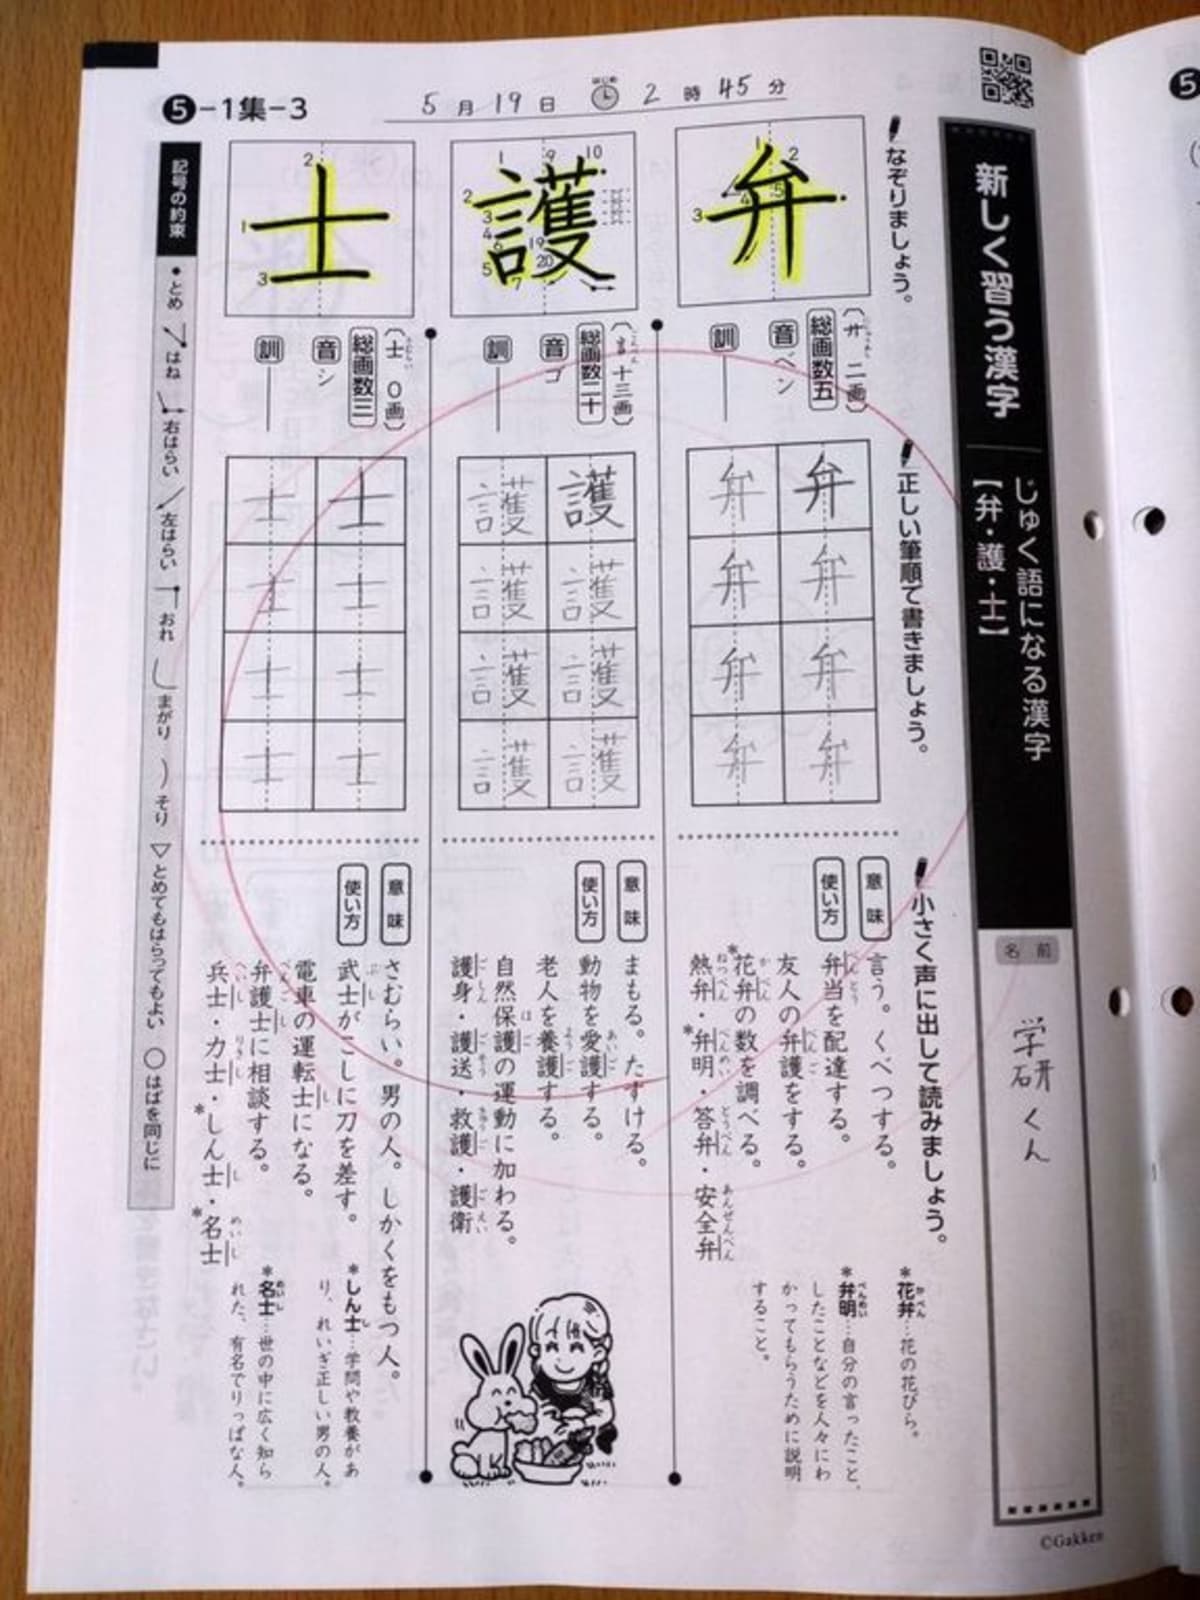 5-1集-3
5月19日 はじめ 2時45分
新しく習う漢字
じゅく語になる漢字
【弁・護・士】
名前
学研くん
なぞりましょう。
弁
護
士
正しい筆順で書きましょう。
小さく声に出して読みましょう。
〔廾 二画〕
総画数五
音 ベン
訓
弁 弁
弁 弁
弁 弁
弁 弁
意味 言う。くべつする。
使い方 弁当を配達する。
友人の弁護をする。
*花弁の数を調べる。
熱弁・*弁明・答弁・安全弁
*花弁…花の花びら。
*弁明…自分の言ったこと、
したことなどを人々にわ
かってもらうために説明
すること。
〔言 十三画〕
総画数二十
音 ゴ
訓
護 護
護 護
護 護
護 護
意味 まもる。たすける。
使い方 動物を愛護する。
老人を養護する。
自然保護の運動に加わる。
護身・護送・救護・護衛
〔士 0画〕
総画数三
音 シ
訓
士 士
士 士
士 士
士 士
意味 さむらい。男の人。しかくをもつ人。
使い方 武士がこしに刀を差す。
電車の運転士になる。
弁護士に相談する。
兵士・力士・*しん士・*名士
*しん士…学問や教養があ
り、れいぎ正しい男の人。
*名士…世の中に広く知ら
れた、有名でりっぱな人。
記号の約束 ●とめ はね 右はらい 左はらい おれ まがり そり ▽とめてもはらってもよい ○はばを同じに
©Gakken